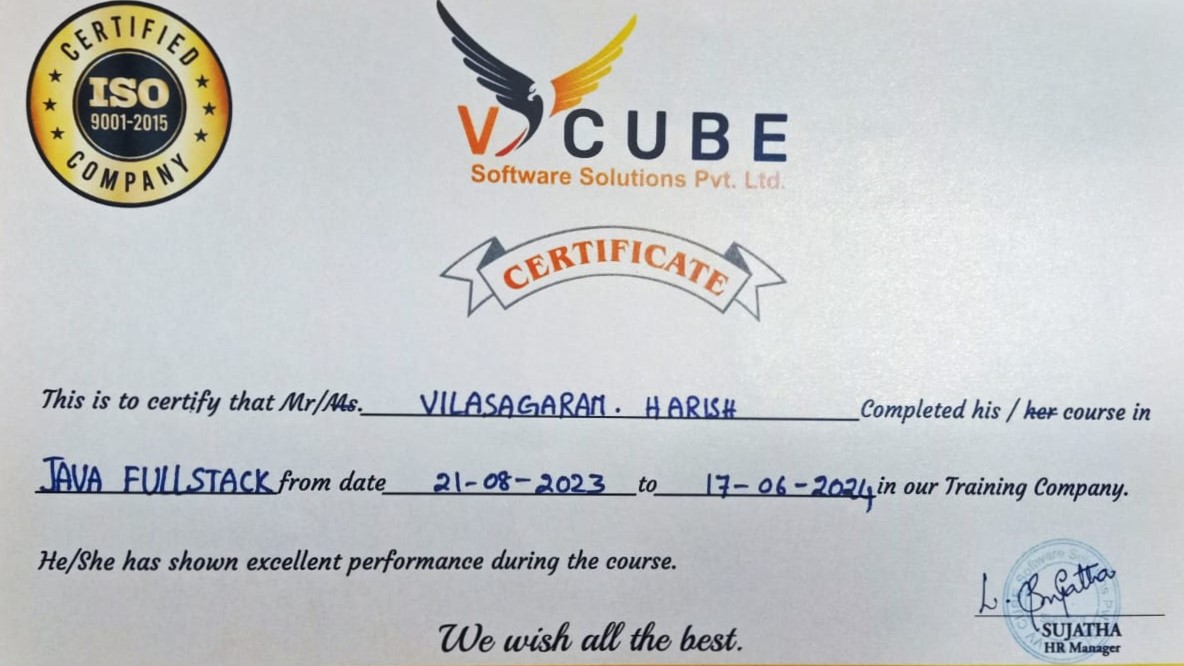 CERTIFIED
ISO
9001-2015
COMPANY
V CUBE
Software Solutions Pvt. Ltd.
CERTIFICATE
This is to certify that Mr/Ms. VILASAGARAM. HARISH Completed his / her course in
JAVA FULLSTACK from date 21-08-2023 to 17-06-2024 in our Training Company.
He/She has shown excellent performance during the course.
L. Sujatha
SUJATHA
HR Manager
We wish all the best.